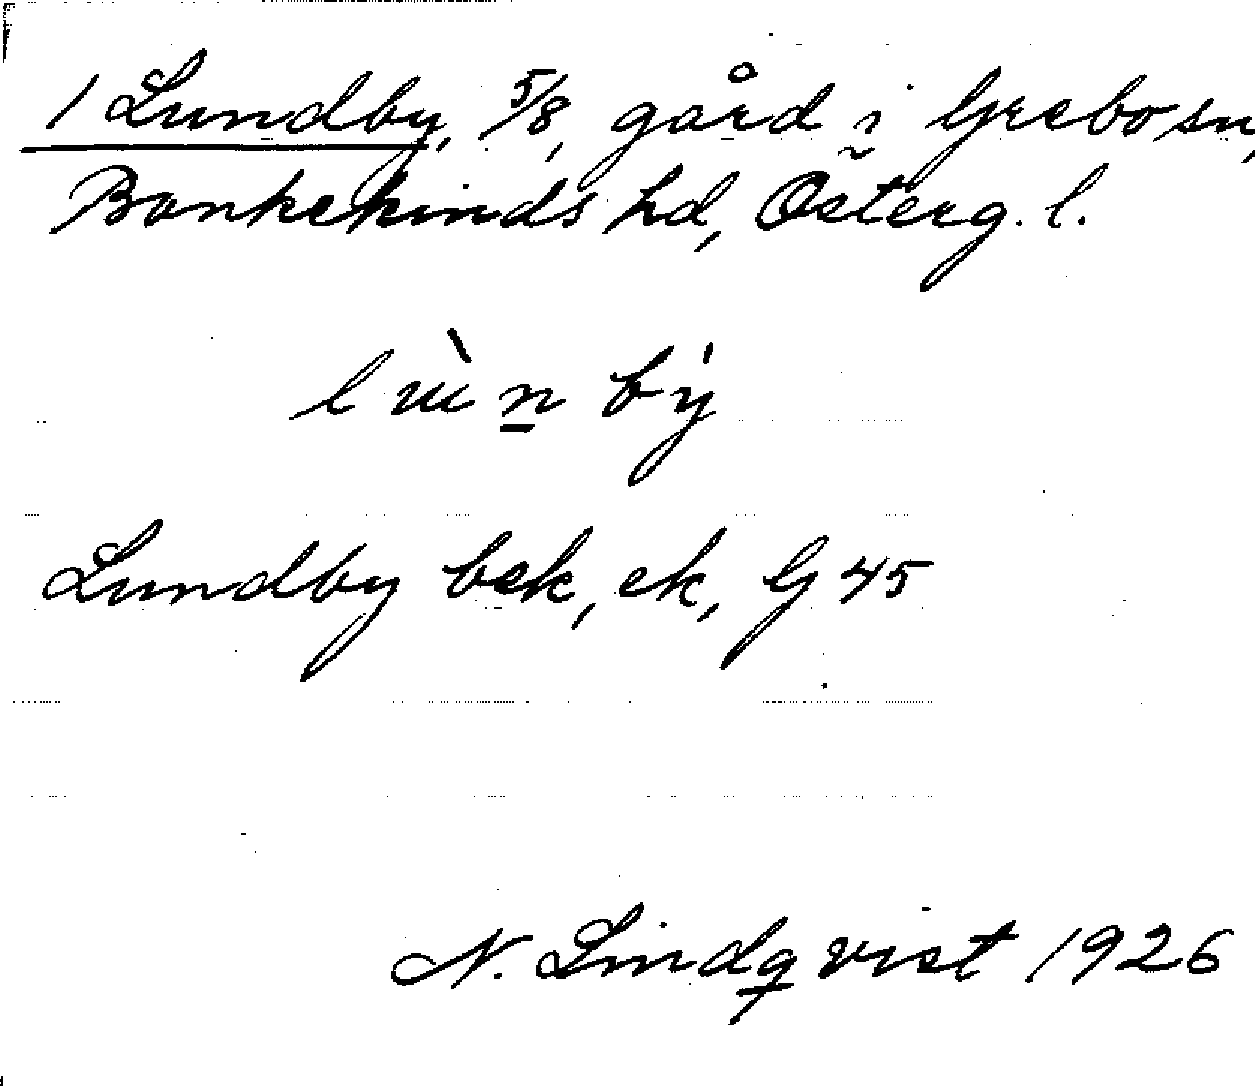 1 Lundby, 5/8, gård i Grebo sn,
Bankekinds hd, Österg. l.
lɯ̀n̲ bẏ
Lundby bek, ek, G 45
N. Lindqvist 1926